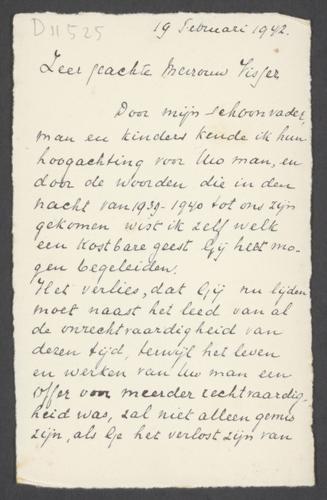 D11525
19 Februari 1942.
Zeer geachte Mevrouw Visser
Door mijn schoonvader,
man en kinders kende ik hun
hoogachting voor Uw man, en
door de woorden die in den
nacht van 1939-1940 tot ons zijn
gekomen wist ik zelf welk
een kostbare geest Gij heet mo-
gen begeleiden.
Het verlies, dat Gij nu lijden
moet naast het leed van al
de onrechtvaardigheid van
dezen tijd, terwijl het leven
en werken van Uw man een
offer voor meerder rechtvaardig-
heid was, zal niet alleen gemis
zijn, als Ge het verlost zijn van